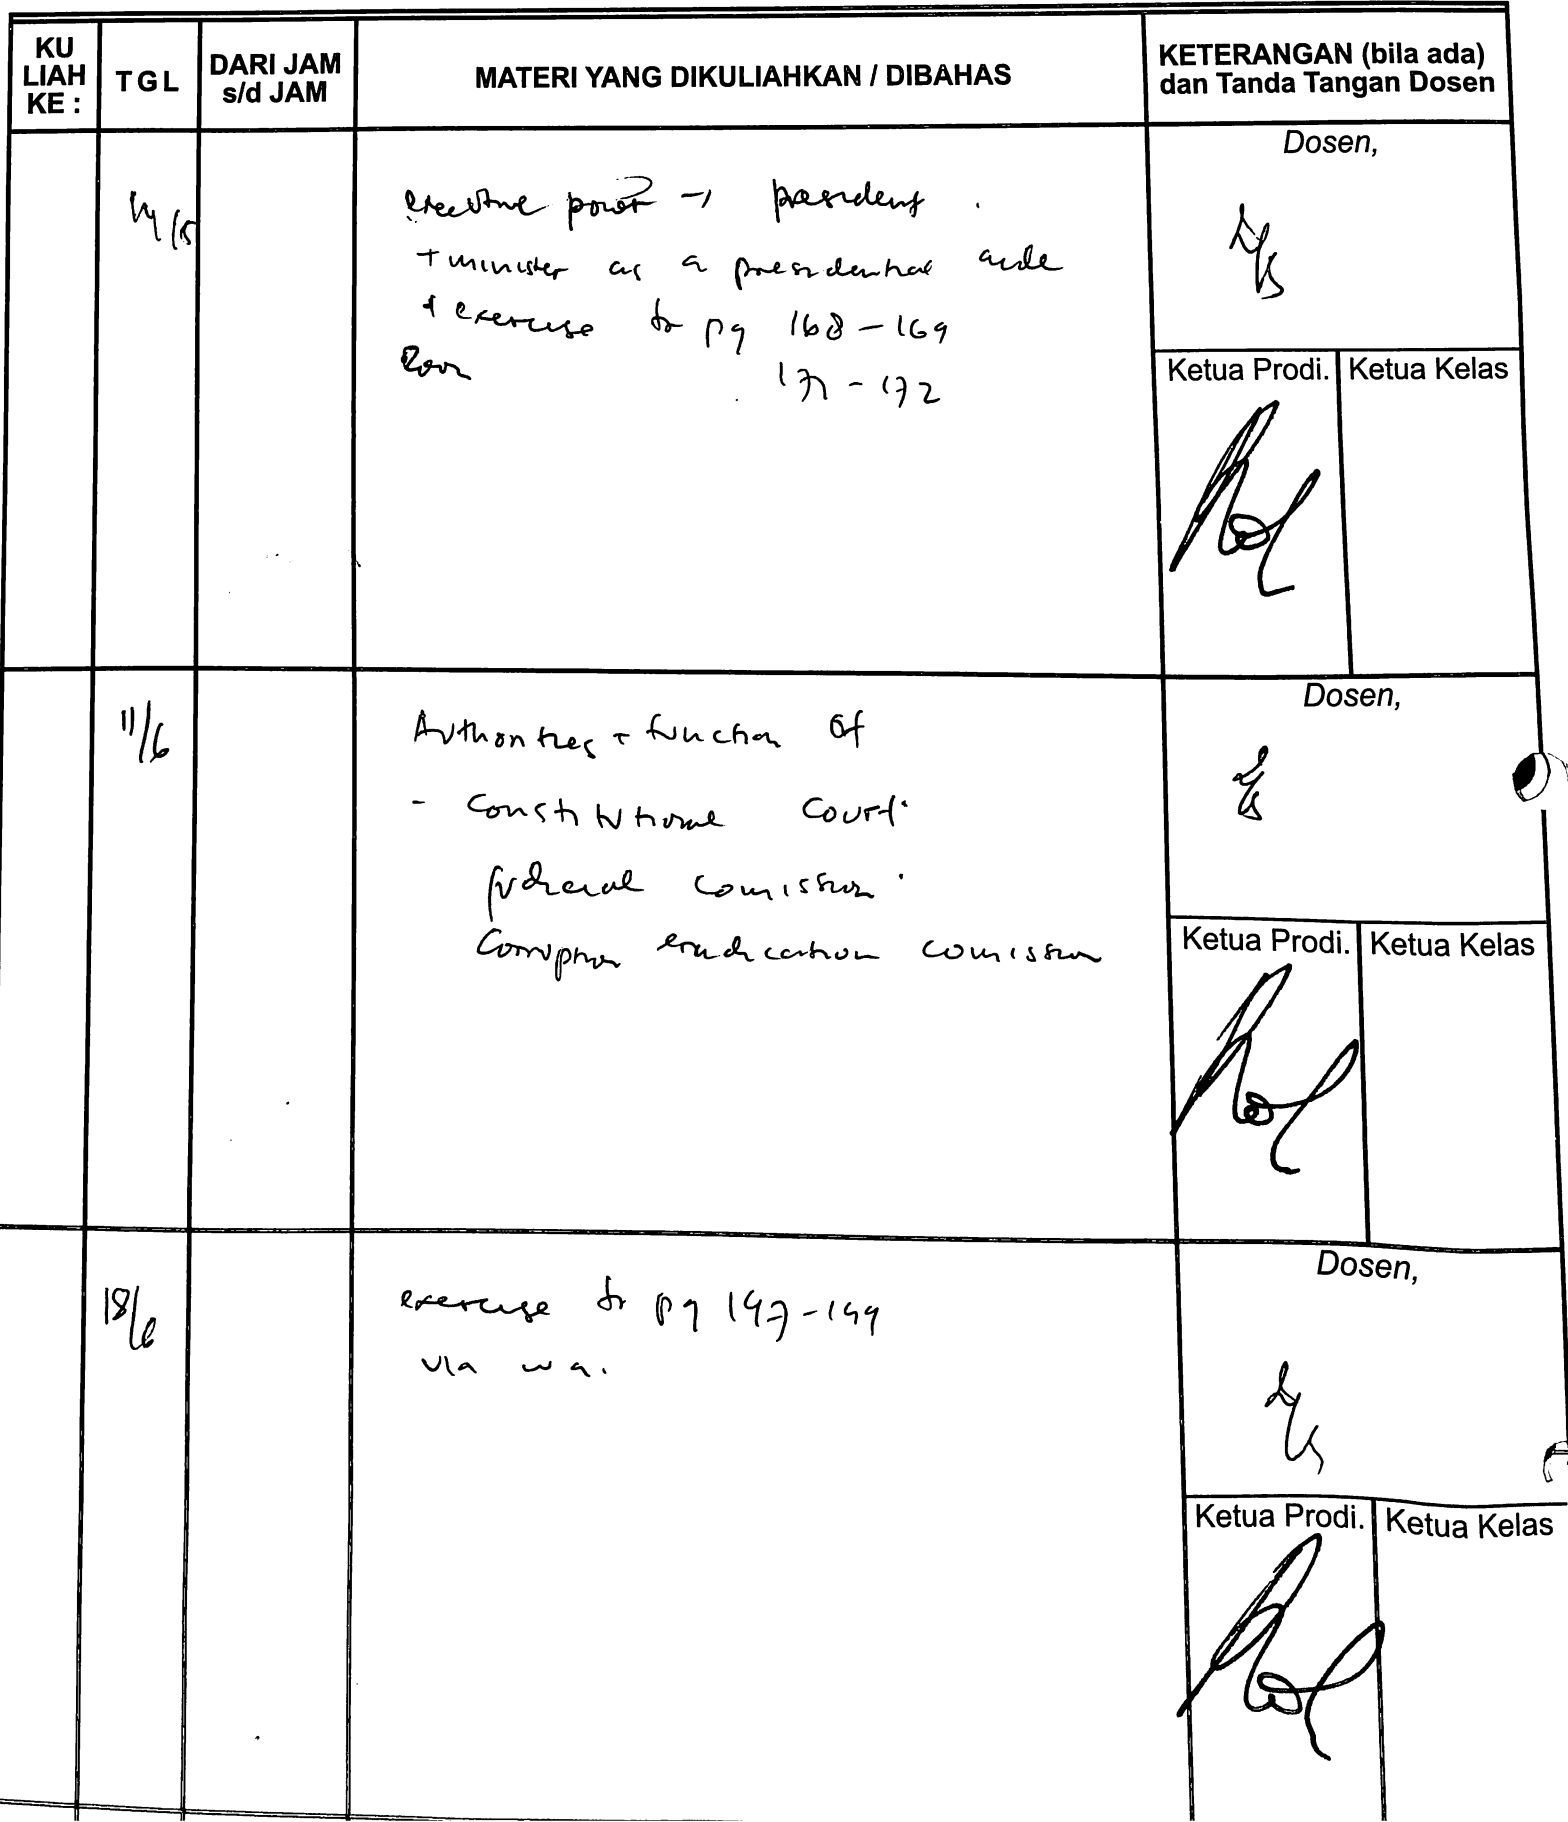 KU
LIAH
KE :
TGL
DARI JAM
s/d JAM
MATERI YANG DIKULIAHKAN / DIBAHAS
KETERANGAN (bila ada)
dan Tanda Tangan Dosen
Dosen,
executive power → president
+ minister as a presidential aide
+ exercise pg 168 - 169
171 - 172
Ketua Prodi.
Ketua Kelas
11/6
Authorities + function of
- Constitutional Court
Judicial comission
Corruption eradication comission
Dosen,
Ketua Prodi.
Ketua Kelas
18/6
exercise pg 147 - 149
via wa.
Dosen,
Ketua Prodi.
Ketua Kelas